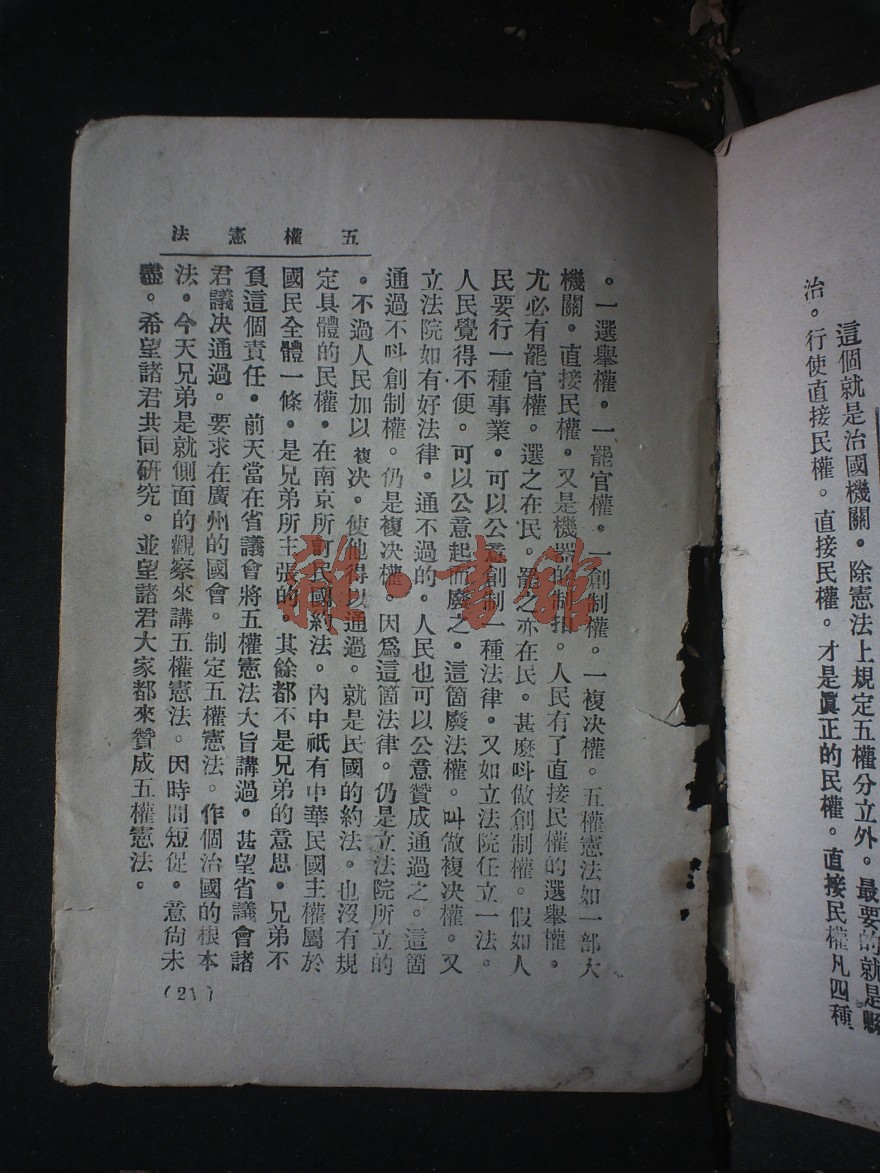 這個就是治國機關。除憲法上規定五權分立外。最要的就是縣
治。行使直接民權。直接民權。才是眞正的民權。直接民權凡四種
五權憲法
。一選舉權。一罷官權。一創制權。一複决權。五權憲法如一部大
機關。直接民權。又是機器的制扣。人民有了直接民權的選舉權。
尤必有罷官權。選之在民。罷之亦在民。甚麽呌做創制權。假如人
民要行一種事業。可以公意創制一種法律。又如立法院任立一法。
人民覺得不便。可以公意起而廢之。這箇廢法權。呌做複决權。又
立法院如有好法律。通不過的。人民也可以公意贊成通過之。這箇
通過不呌創制權。仍是複决權。因爲這箇法律。仍是立法院所立的
。不過人民加以複决。使他得以通過。就是民國的約法。也沒有規
定具體的民權。在南京所訂民國約法。內中祇有中華民國主權屬於
國民全體一條。是兄弟所主張的。其餘都不是兄弟的意思。兄弟不
負這個責任。前天當在省議會將五權憲法大旨講過。甚望省議會諸
君議决通過。要求在廣州的國會。制定五權憲法。作個治國的根本
法。今天兄弟是就側面的觀察來講五權憲法。因時間短促。意尙未
盡。希望諸君共同硏究。並望諸君大家都來贊成五權憲法。
(21)
雜·書館